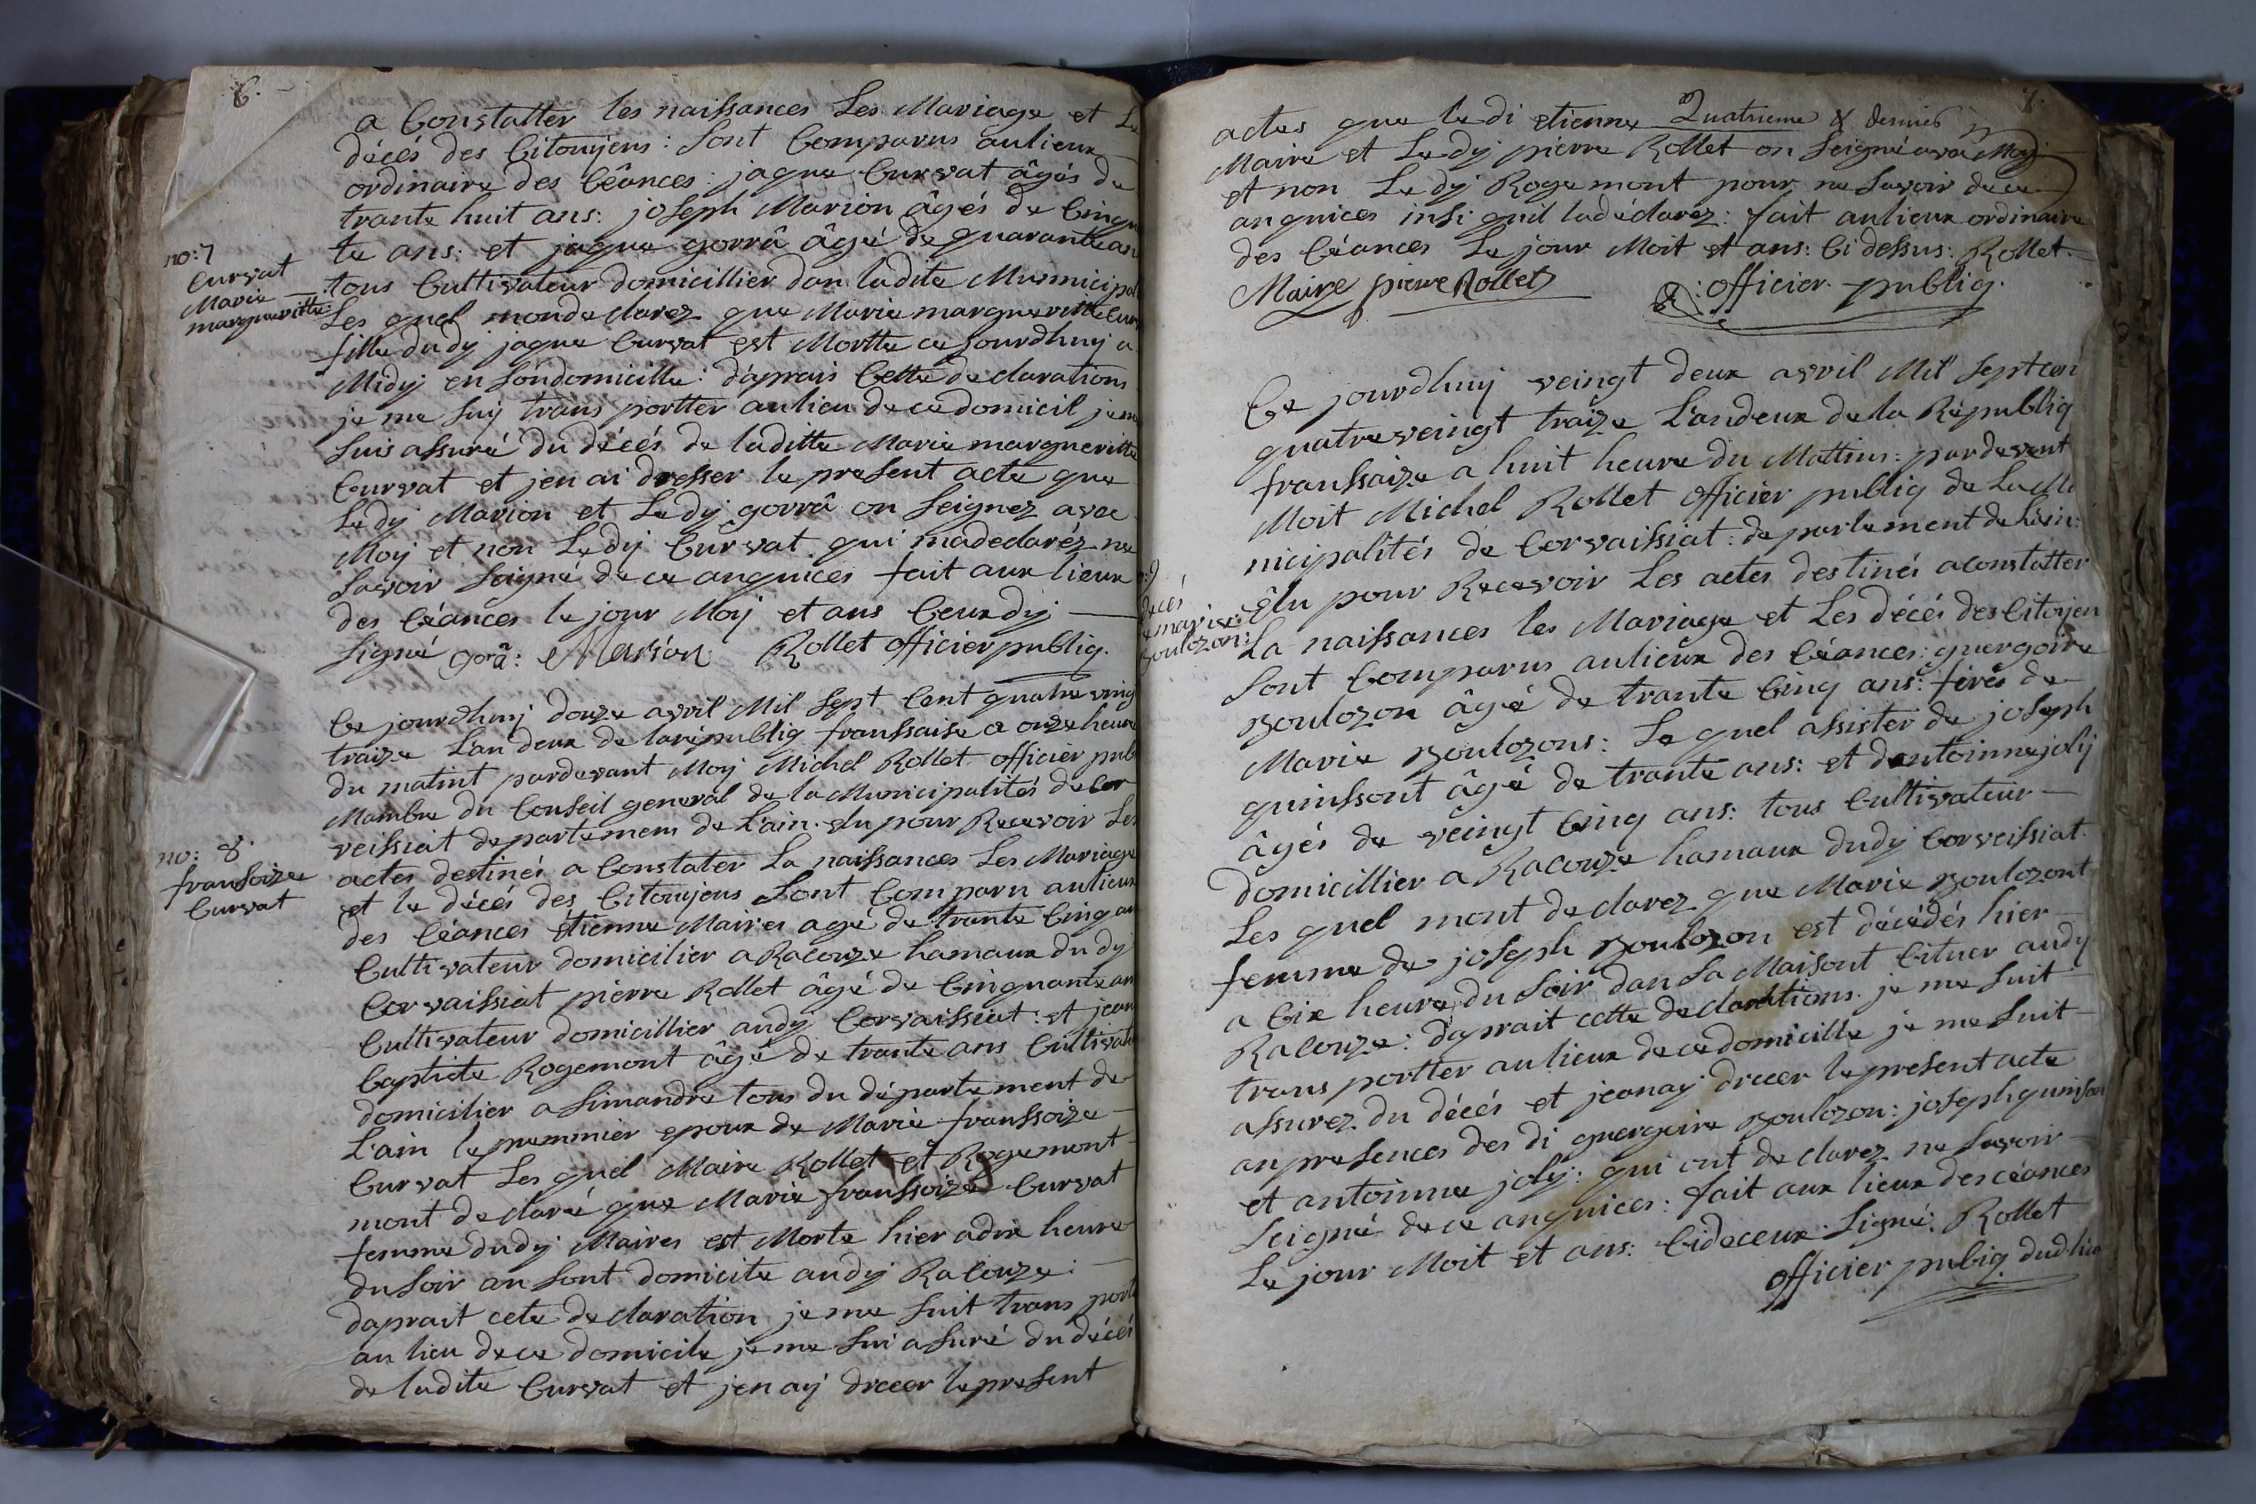 6.
a Constatter les naissances Les Mariage et Le
décés des Citouyens : sont Comparus aulieux
ordinaire des Céances : jaque Curvat âgés de
trante huit ans : joseph Marion âgés de Cinqu
te ans : et jaque gorrâ âgé de quarante an
tous Cultivateur domicillier dan ladite Municipal
Les quel monde clarez que Marie margueritte Curv
fille dudy jaque Curvat est Mortte ce jourdhuy a
Midy en son domicille : d'aprais Cette declarations
je me suy trans portter aulieu de ce domicil je me
suis assuré du décés de laditte Marie marguerette
Curvat et jen ai dresser le present acte que
Ledy Marion et Ledy gorrâ on seignez avec
Moy et non Ledy Curvat qui madeclaréz ne
savoir seigné de ce anquices fait aux lieux
des Céances le jour Moy et ans Ceuxdy
signé gorâ : Marion Rollet officier publiq.
no: 7
Curvat
Marie
margueritte
Ce jourdhuy douze avril Mil sept Cent quatre ving
traize L'an deux de la republiq franssaise a onze heure
du matint pardevant Moy Michel Rollet officier publ
Mambre du Conseil general de la Municipalités de Cor
veissiat departemem de L'ain. elu pour Recevoir Les
actes destinés a Constater La naissances Les Mariage
et le décés des Citouyens sont Comparu aulieux
des Céances étienne Maires agé de trante Cinq an
Cultivateur domicilier a Racouze hamaux dudy
Corvaissiat pierre Rollet âgé de Cinquante an
Cultivateur domicillier audy Corvaissiat : et jean
Captiste Rogemont âgé de trante ans Cultivate
domicilier a simandre tous du département de
L'ain le premmier epoux de Marie franssoize
Curvat Les quel Maire Rollet et Rogemont
mont declaré que Marie franssoize Curvat
femme dudy Maires est Morte hier a dix heure
du soir an sont domicile audy Racouze :
daprait cete declaration je me suit trans porte
au lieu de ce domicile je me sui assuré du décés
de ladite Curvat et jen ay dreeer le present
no: 8.
fransoize
Curvat
8.
actes que ledi etienne Quatrieme & dernier
Maire et Ledy pierre Rollet on seigné avec Moy
et non Ledy Rogemont pour ne savoir de ce
anquices insi quil ladéclarez : fait aulieux ordinaire
des Céances Le jour Moit et ans : Ci dessus : Rollet.
Maire pierre Rollet : officier publiq.
Ce jourdhuy veingt deux avril Mil sept cen
quatreveingt traize L'andeux de la Républiq
franssaize a huit heure du Mattins : pardevent
Moit Michel Rollet officier publiq de La Mu
nicipalités de Corvaissiat : departement de Lain :
Êlu pour Recevoir Les actes destinés a constatter
La naissances les Mariage et Les décés des Citoyen
sont Comparus aulieux des Céances : guergoire
Boulozon âgé de trante Cinq ans : ferés de
Marie Boulozons : Le quel assister de joseph
quinssont âgé de trante ans : et dantoinne joly
âgés de veingt Cinq ans : tous Cultivateur
domicillier a Racouze hamaux dudy Corveissiat
Les quel mont declarez que Marie Boulozont
femme de joseph Boulozon est décédés hier
a Cix heure du soir dan sa Maisont Cituer audy
Racouze : daprait cette declarations je me suit
trans portter aulieux de ce domicille je me suit
assurez du décés et jeanay dreeer le present acte
anpresences des di guergoire Boulozon : joseph quinson
et antoinne joly : qui ont declarez ne savoir
seigné de ce anquices : fait aux lieux des céances
Le jour Moit et ans : Cideceux signé : Rollet
officier publiq dudlieu
décés
marie
Boulozon :